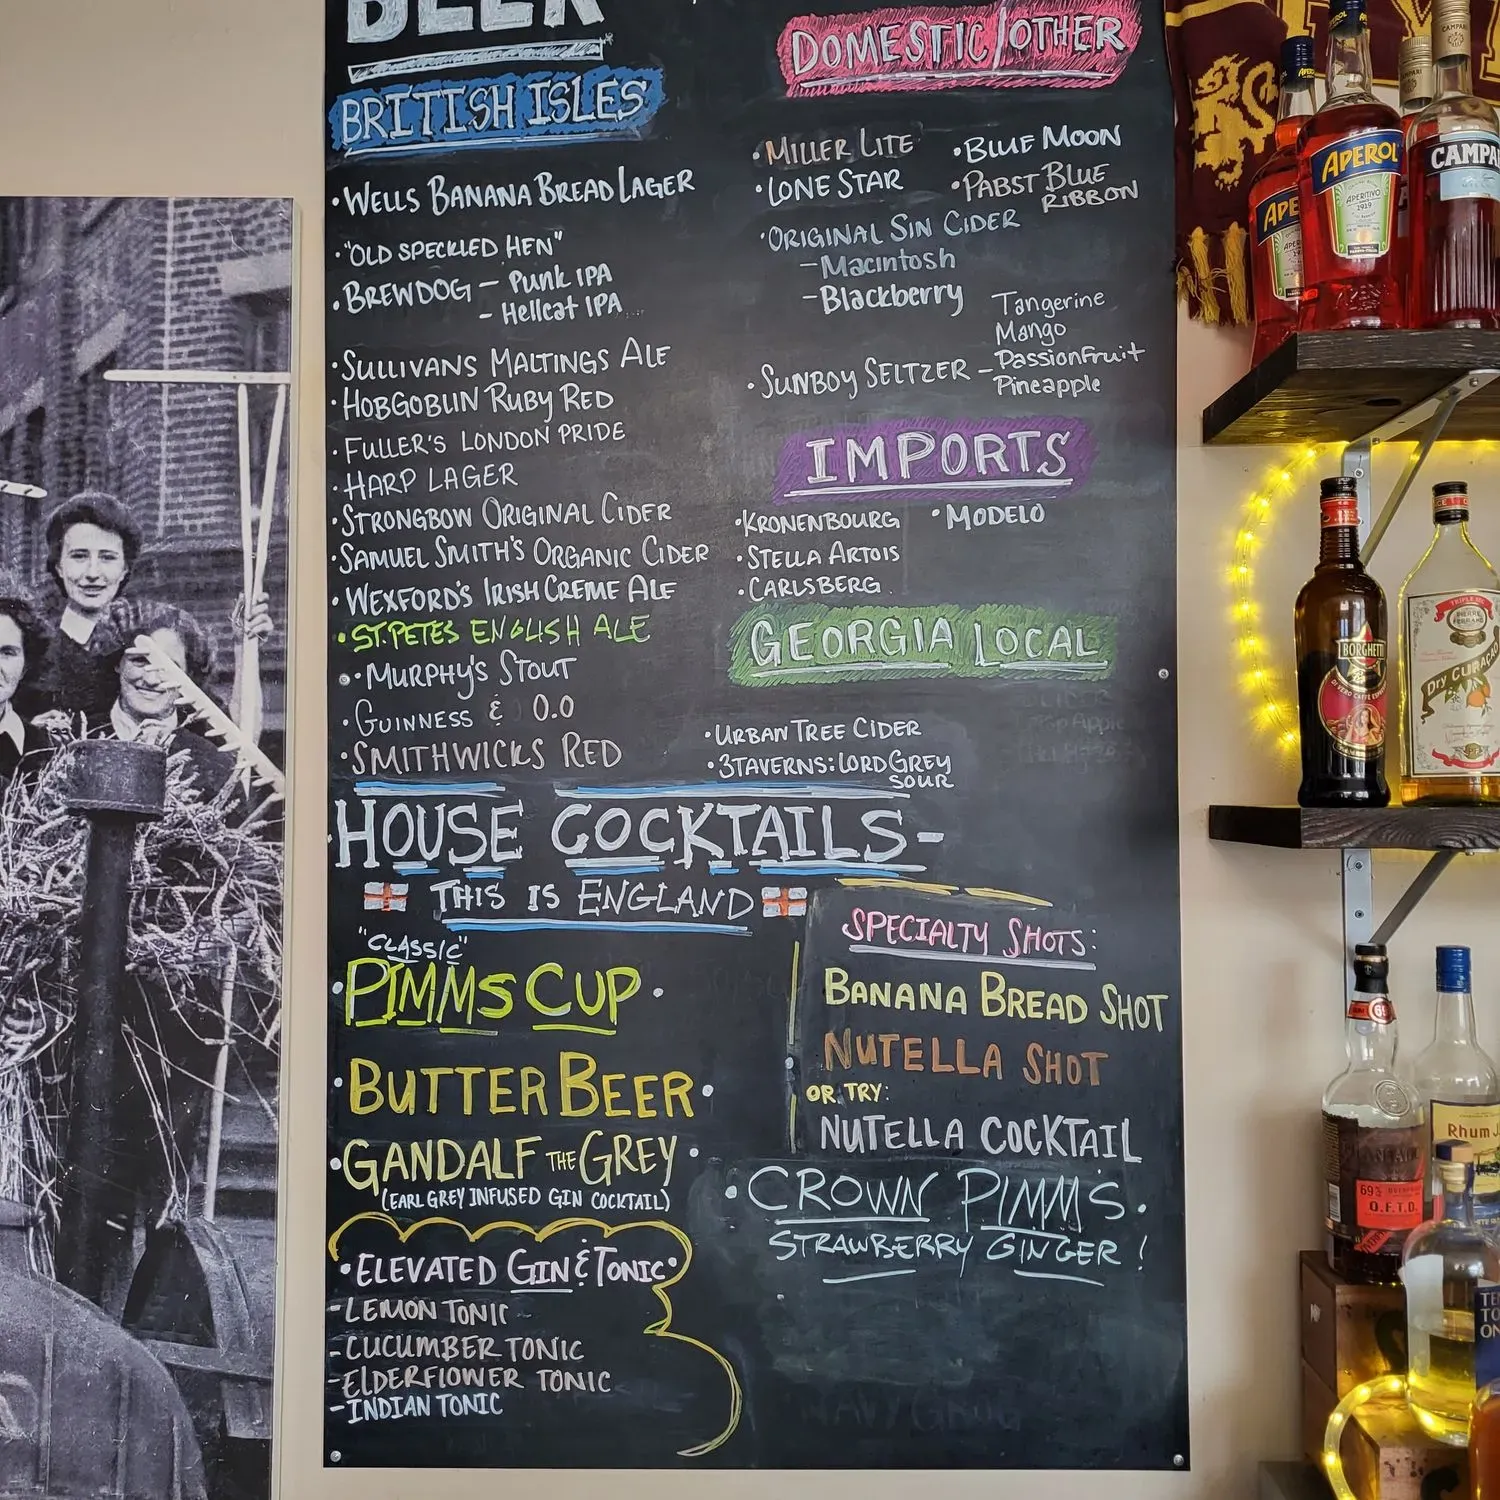 BEER
BRITISH ISLES
• WELLS BANANA BREAD LAGER
• "OLD SPECKLED HEN"
• BREWDOG – Punk IPA
– Hellcat IPA
• SULLIVANS MALTINGS ALE
• HOBGOBLIN RUBY RED
• FULLER'S LONDON PRIDE
• HARP LAGER
• STRONGBOW ORIGINAL CIDER
• SAMUEL SMITH'S ORGANIC CIDER
• WEXFORD'S IRISH CREME ALE
• ST. PETES ENGLISH ALE
• MURPHY'S STOUT
• GUINNESS & 0.0
• SMITHWICKS RED
DOMESTIC/OTHER
• MILLER LITE • BLUE MOON
• LONE STAR • PABST BLUE
RIBBON
• ORIGINAL SIN CIDER
– Macintosh
– Blackberry
Tangerine
Mango
• SUNBOY SELTZER – Passionfruit
Pineapple
IMPORTS
• KRONENBOURG • MODELO
• STELLA ARTOIS
• CARLSBERG
GEORGIA LOCAL
• URBAN TREE CIDER
• 3TAVERNS: LORD GREY
SOUR
HOUSE COCKTAILS –
THIS IS ENGLAND
"CLASSIC"
• PIMMS CUP •
• BUTTERBEER •
• GANDALF THE GREY •
(EARL GREY INFUSED GIN COCKTAIL)
• ELEVATED GIN & TONIC •
– LEMON TONIC
– CUCUMBER TONIC
– ELDERFLOWER TONIC
– INDIAN TONIC
SPECIALTY SHOTS:
BANANA BREAD SHOT
NUTELLA SHOT
OR TRY:
NUTELLA COCKTAIL
• CROWN PIMM'S •
STRAWBERRY GINGER!
APEROL
APERITIVO
1919
CAMPA
APE
BORGHETTI
TRIPLE SEC
PIERRE FERRAND
DRY CURAÇAO
69%
O.F.T.D.
Rhum J